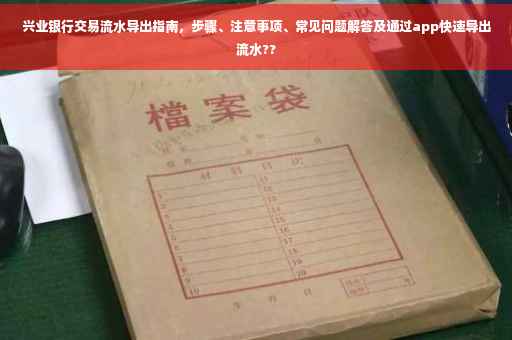 兴业银行交易流水导出指南，步骤、注意事项、常见问题解答及通过app快速导出
流水??
檔案袋
材料目次
1 11
2 12
3 13
4 14
5 15
6 16
7 17
8 18
9 19
10 20
年 月 日